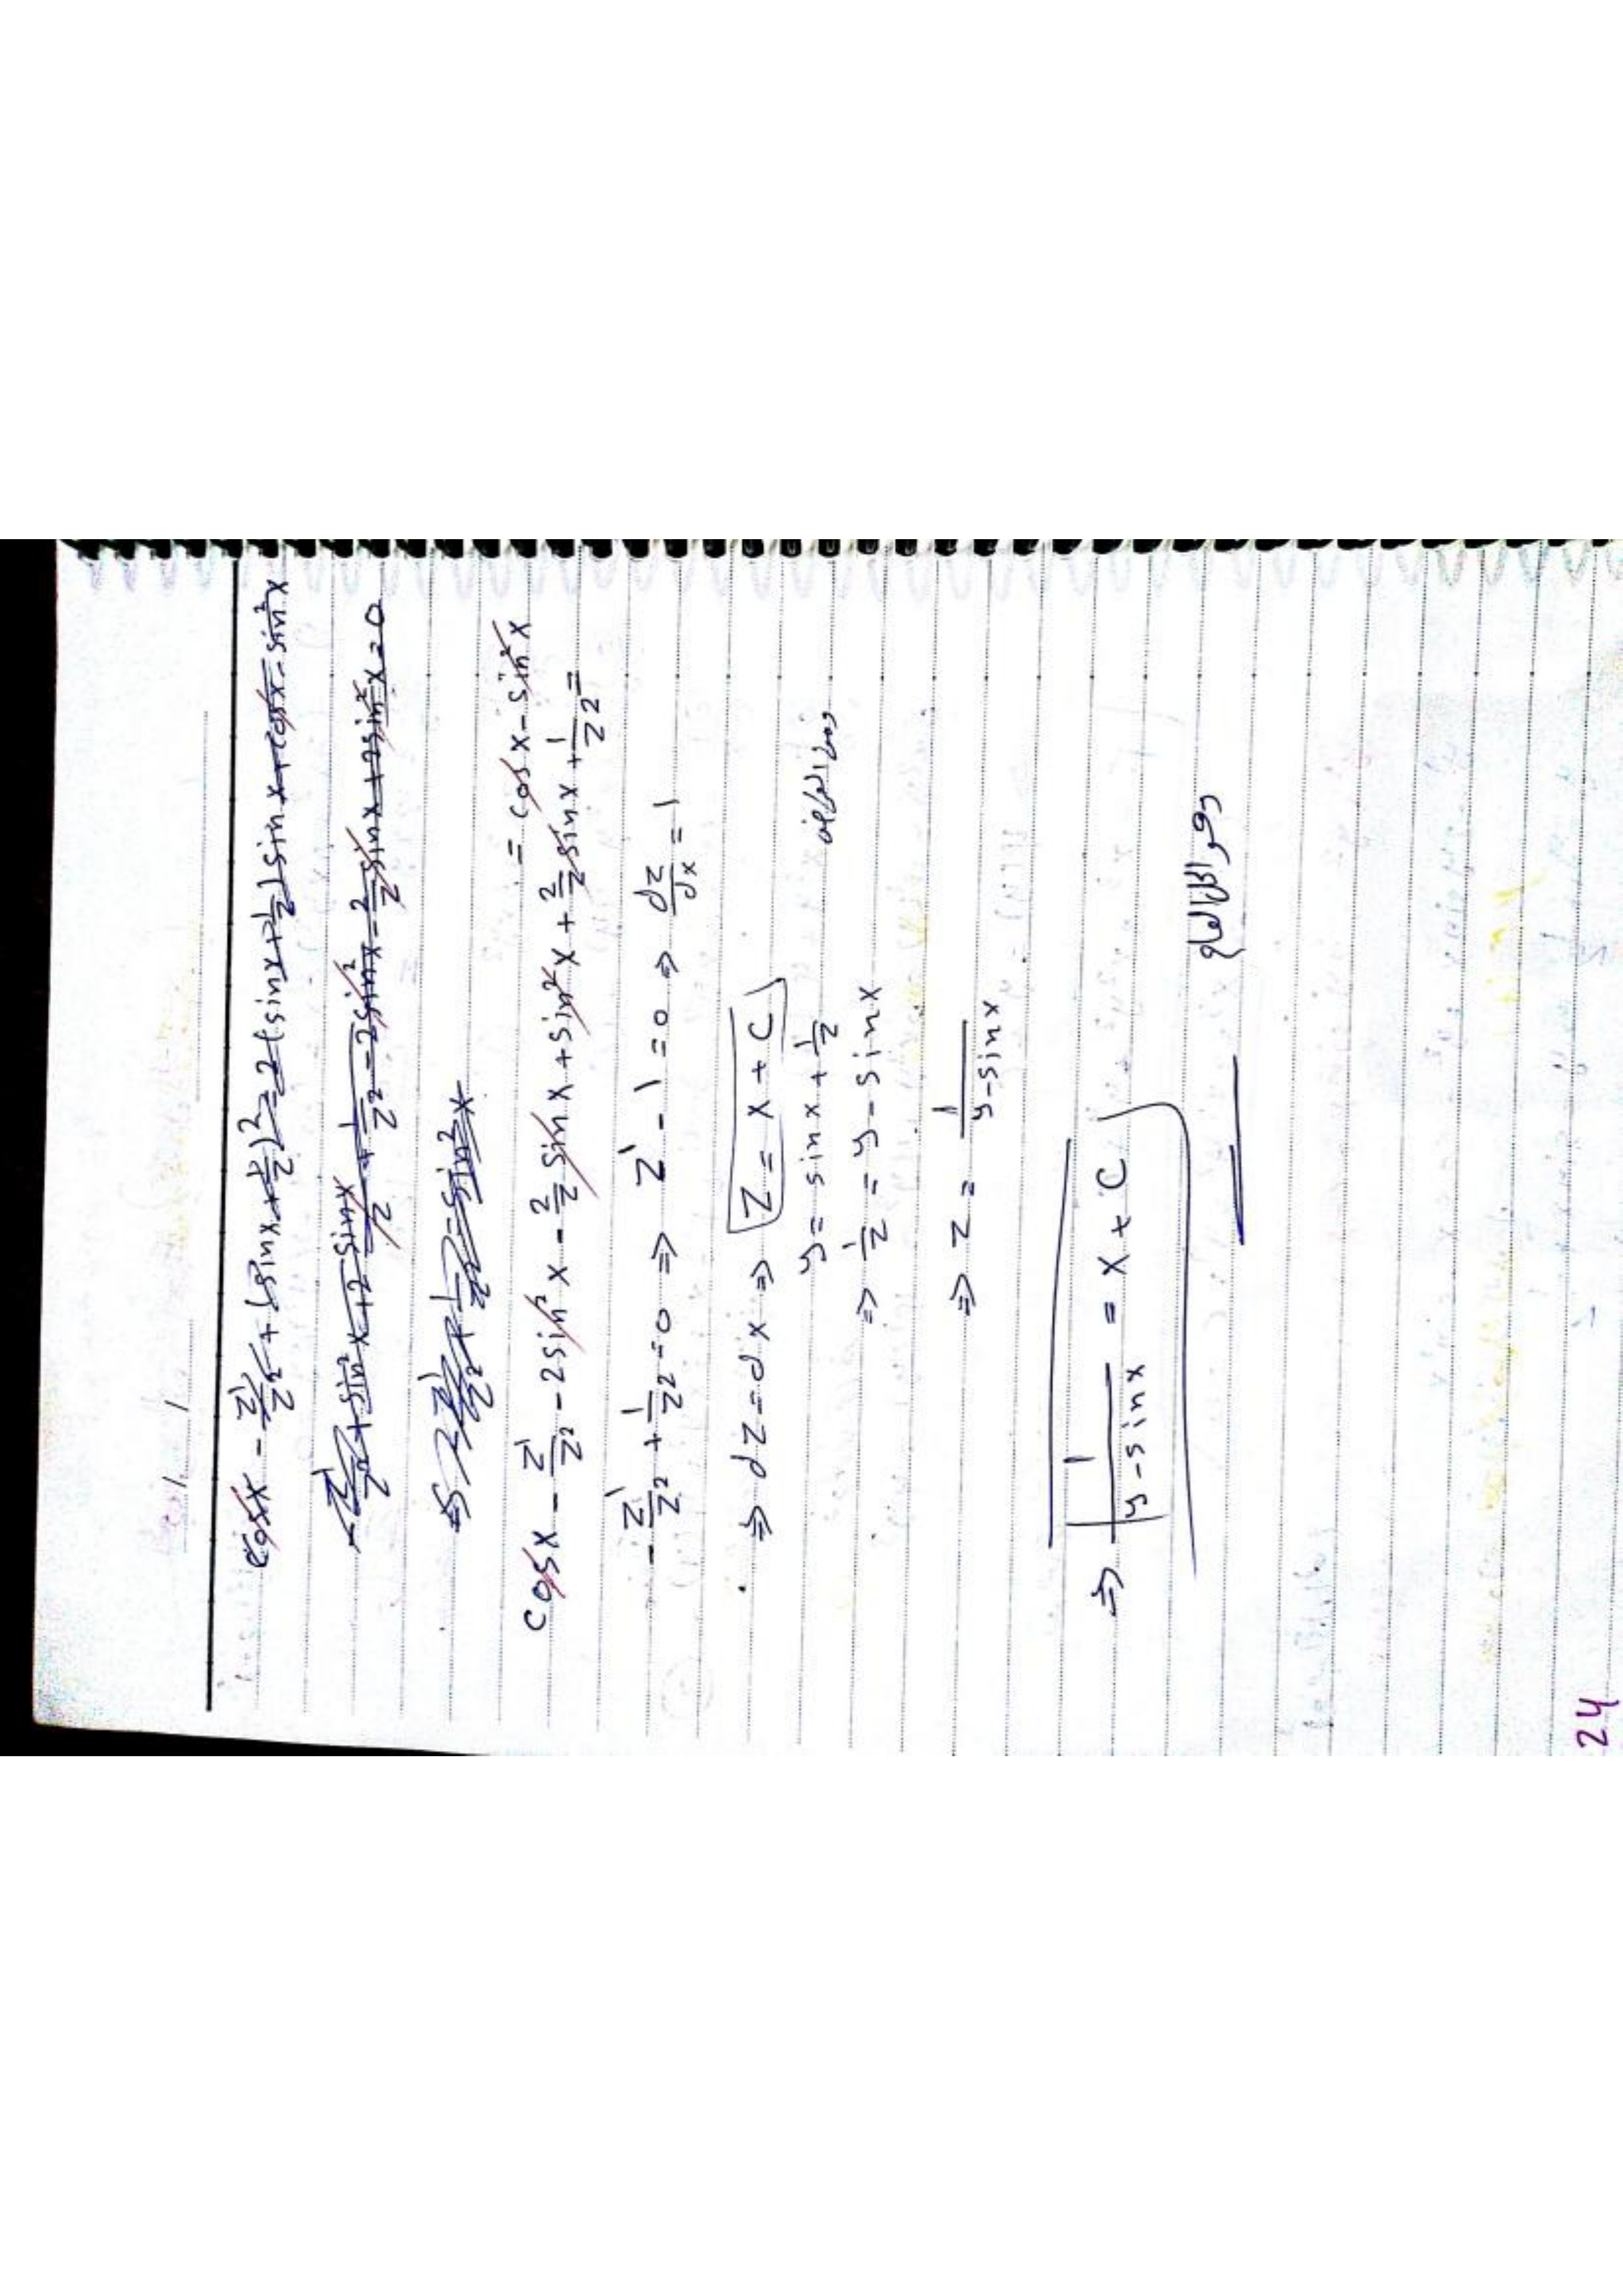 / /
cosx - z'/z² + (sinx + 1/z)² = 2(sinx + 1/z) sinx + cosx - sin²x
-z'/z² + sin²x + 2 sinx/z + 1/z² - 2sin²x - 2/z sinx + 2sin²x = 0
cosx - z'/z² - 2sin²x - 2/z sinx + sin²x + 2/z sinx + 1/z² = = cosx - sin²x
-z'/z² + 1/z² = 0 ⇒ z' - 1 = 0 ⇒ dz/dx = 1
⇒ dz = dx ⇒ z = x + C
y = sinx + 1/z
⇒ 1/z = y - sinx
⇒ z = 1/(y - sinx)
⇒ 1/(y - sinx) = x + C
وهو الحل العام
24